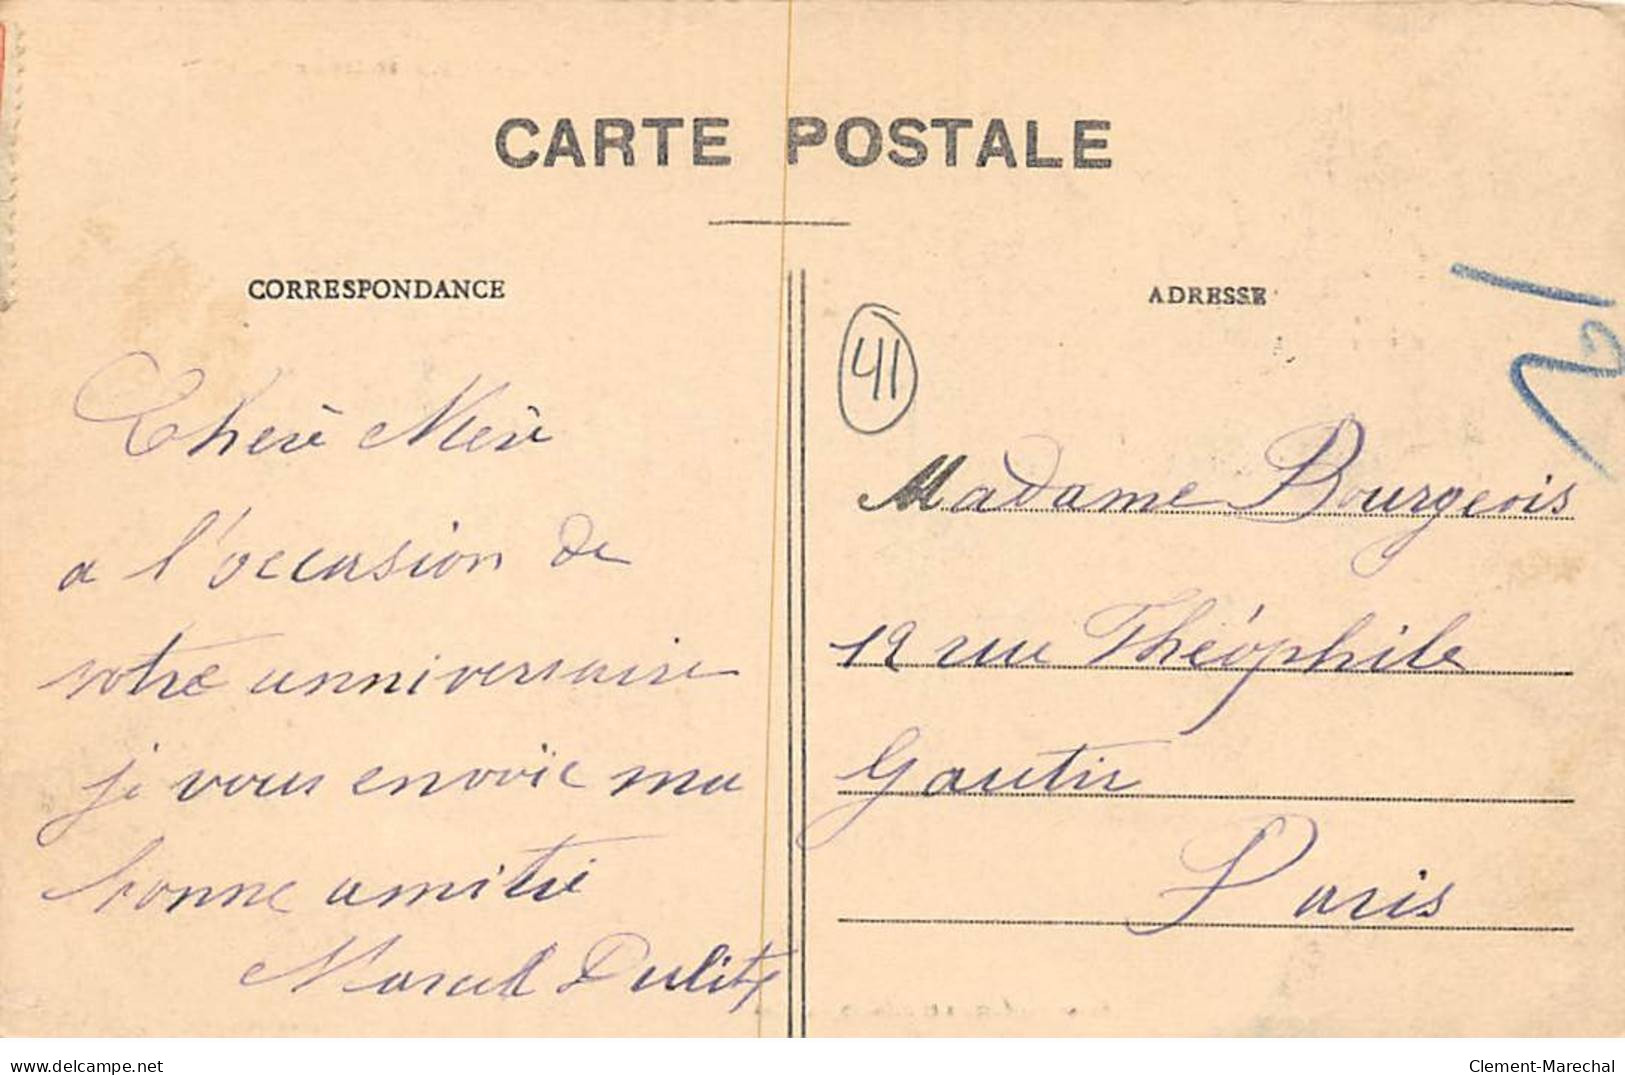 CARTE POSTALE
CORRESPONDANCE
Chere Mere
a l'occasion de
votre anniversaire
je vous envoie ma
bonne amitié
Marcel
ADRESSE
41
Madame Bourgeois
12 rue Théophile
Gautier
Paris
delcampe.net
Clement-Marechal